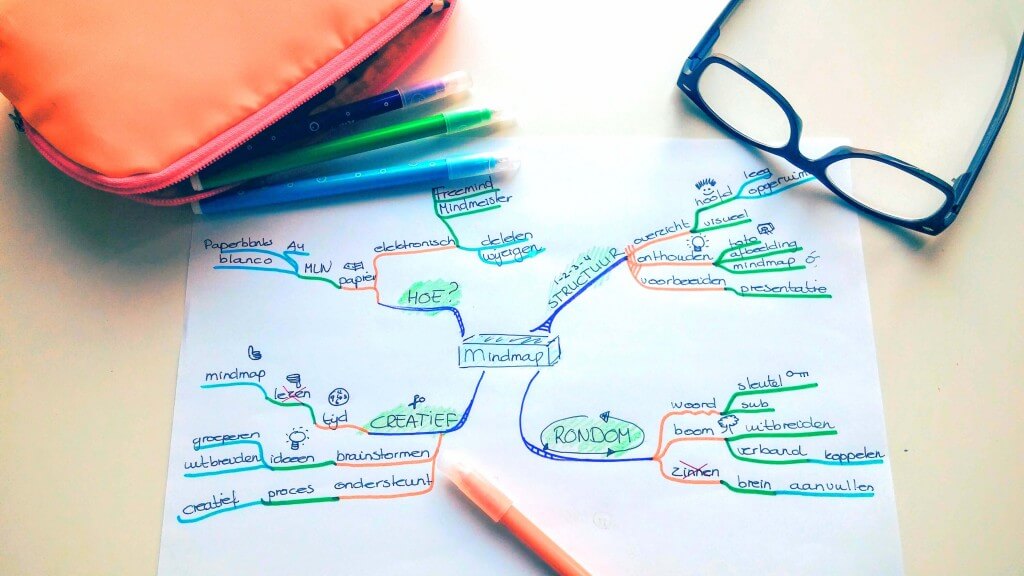 Mindmap
HOE?
papier
MLN
A4
Paperblanks
blanco
elektronisch
Freemind
Mindmeister
delelen
wijzigen
1-2-3-4
STRUCTUUR
overzicht
hoofd
leeg
opgeruimd
visueel
onthouden
foto
afbeelding
mindmap
voorbereiden
presentatie
RONDOM
woord
sleutel
sub
boom
uitbreiden
verband
koppelen
zinnen
brein
aanvullen
CREATIEF
tijd
lezen
mindmap
brainstormen
ideeën
groeperen
uitbreiden
ondersteunt
proces
creatief